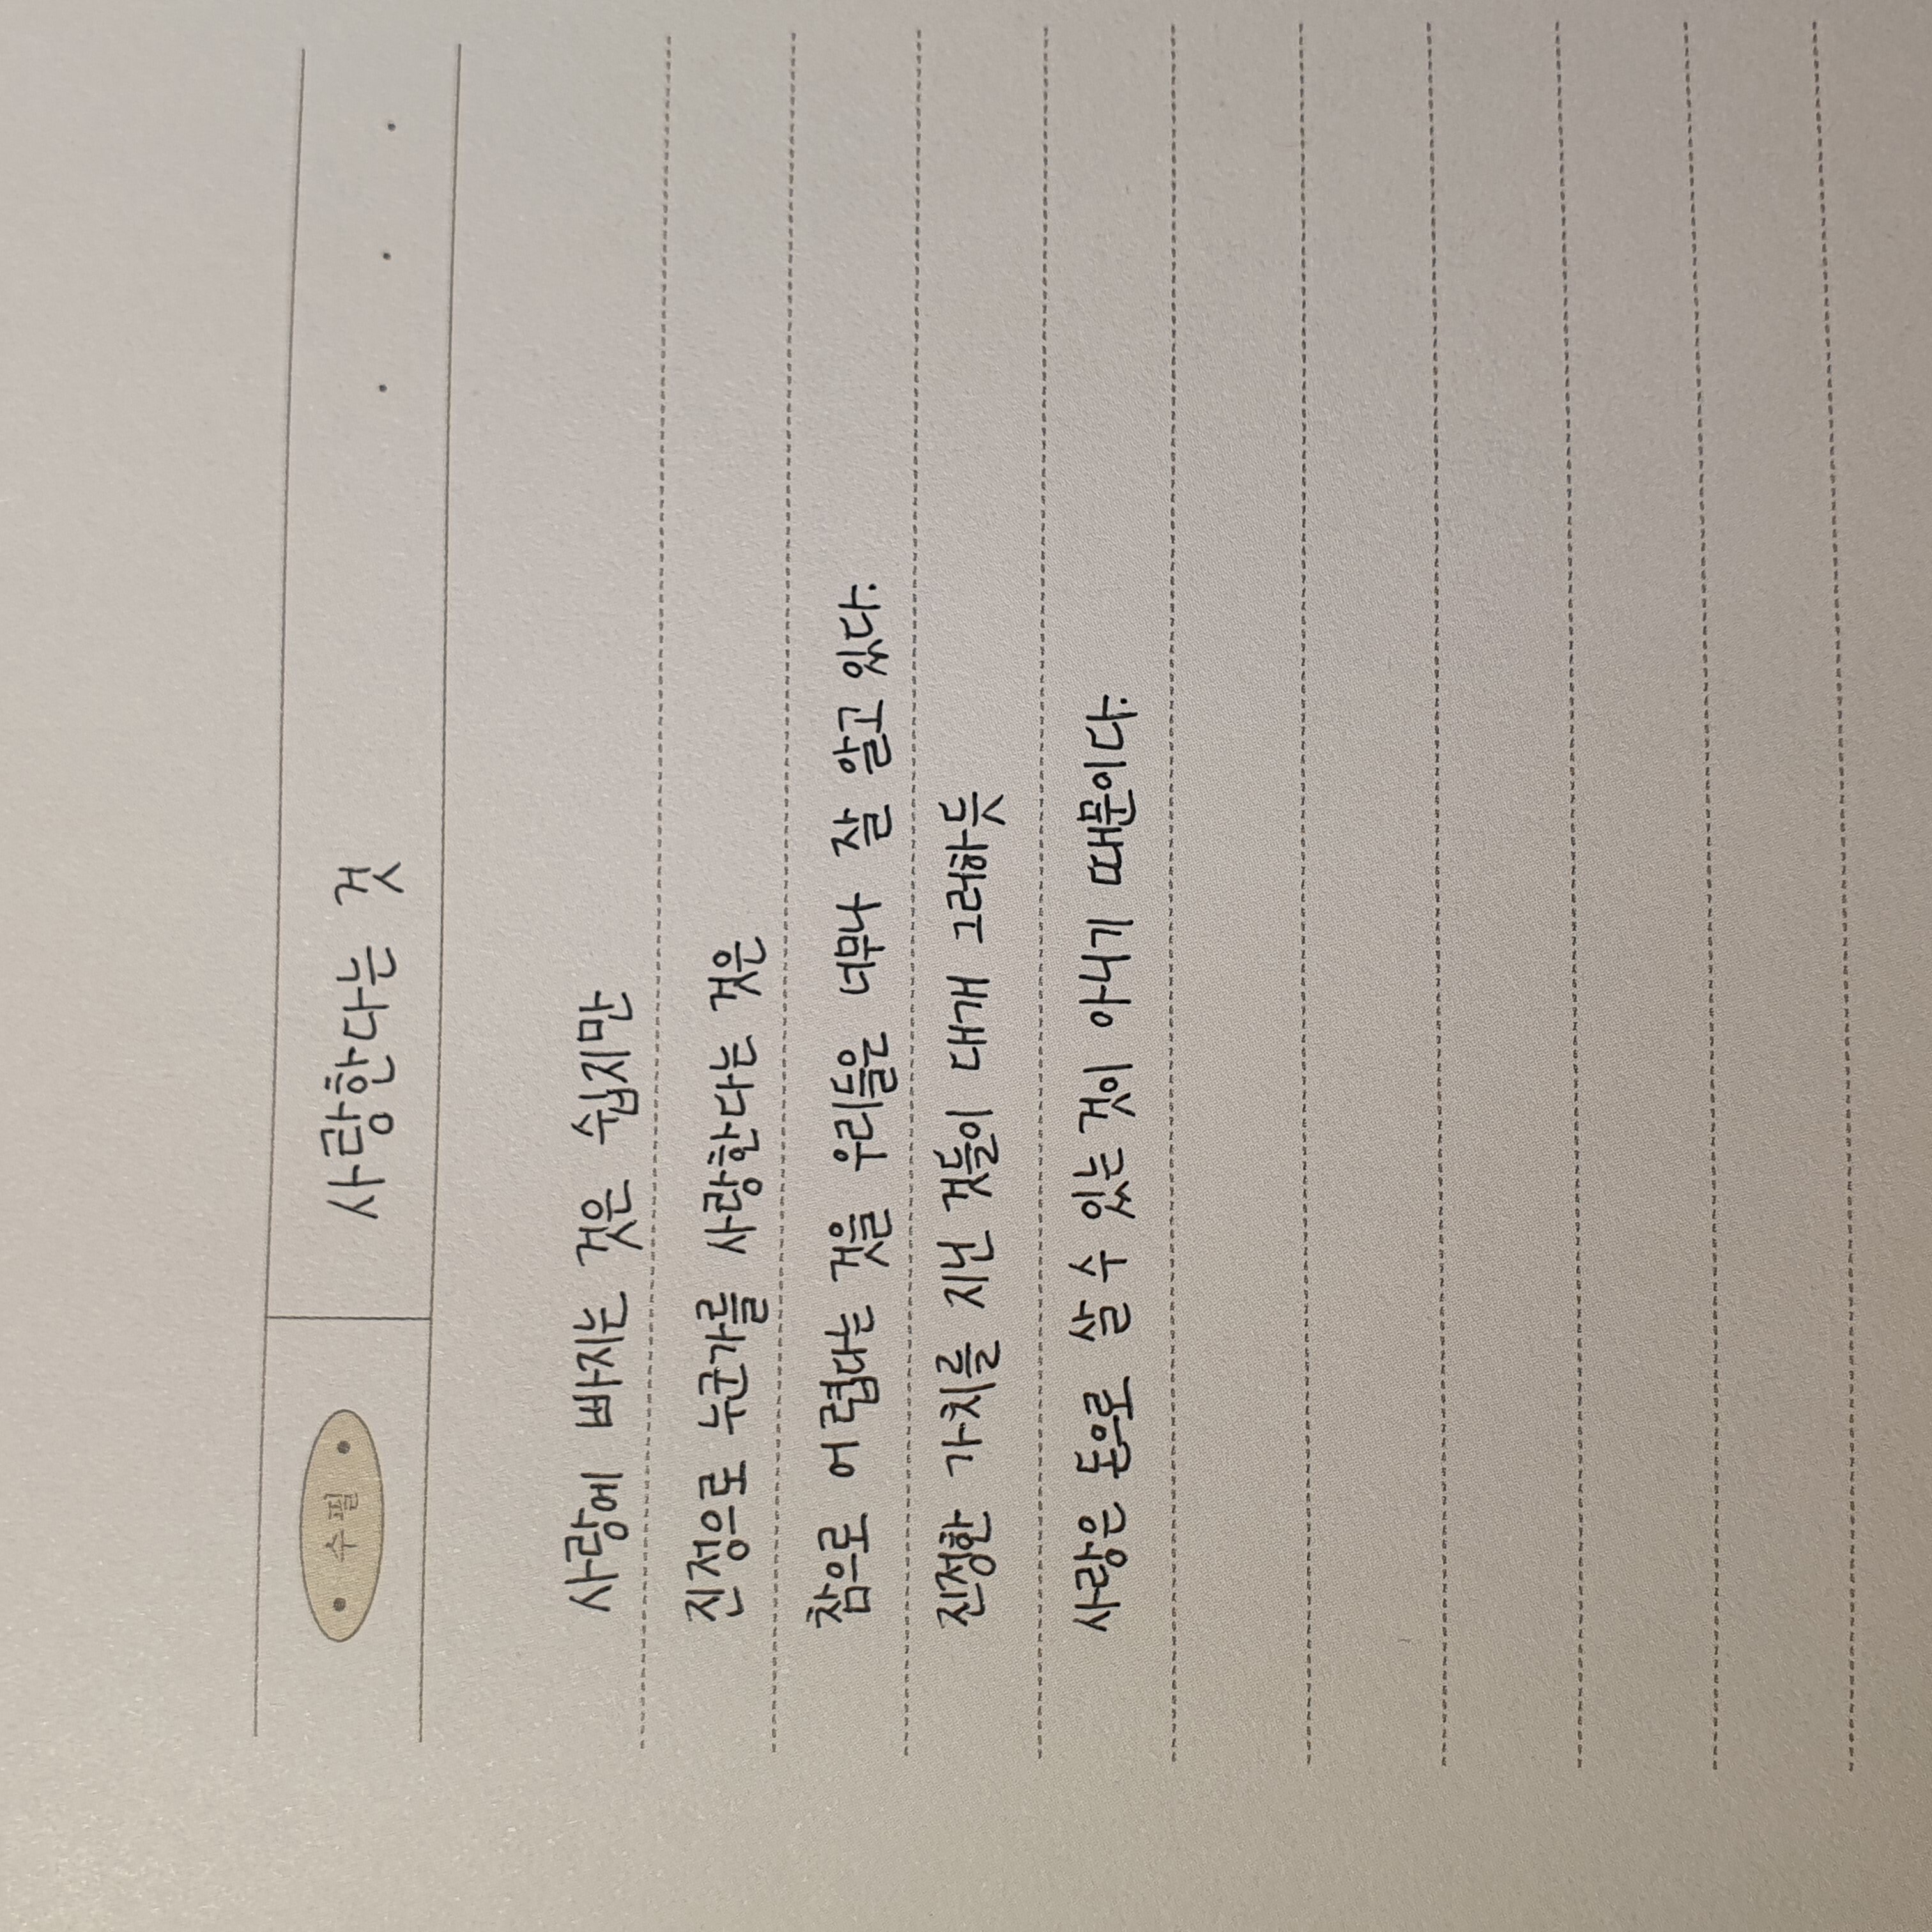 수필
사랑한다는 것
사랑에 빠지는 것은 쉽지만
진정으로 누군가를 사랑한다는 것은
참으로 어렵다는 것을 우리들은 너무나 잘 알고 있다.
진정한 가치를 지닌 것들이 대개 그러하듯
사랑은 돈으로 살 수 있는 것이 아니기 때문이다.